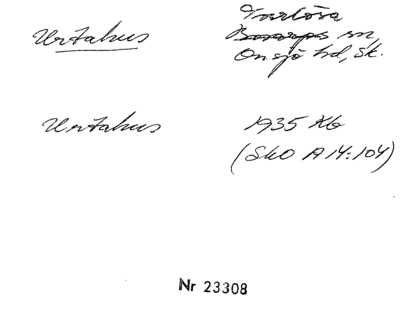 Urtahus
Torlösa
Bosarps sn,
Onsjö hd, Sk.
Urtahus
1935 Kb
(SkO A14:104)
Nr 23308